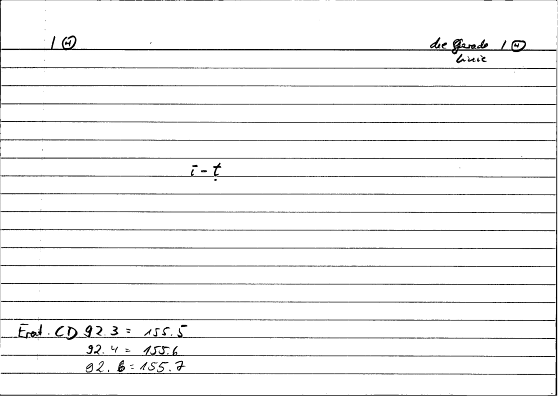 1 (H) die Gerade 1 (H)
Linie
ī - ṭ
Erat. (I) 92.3 = 155.5
92.4 = 155.6
92.6 = 155.7